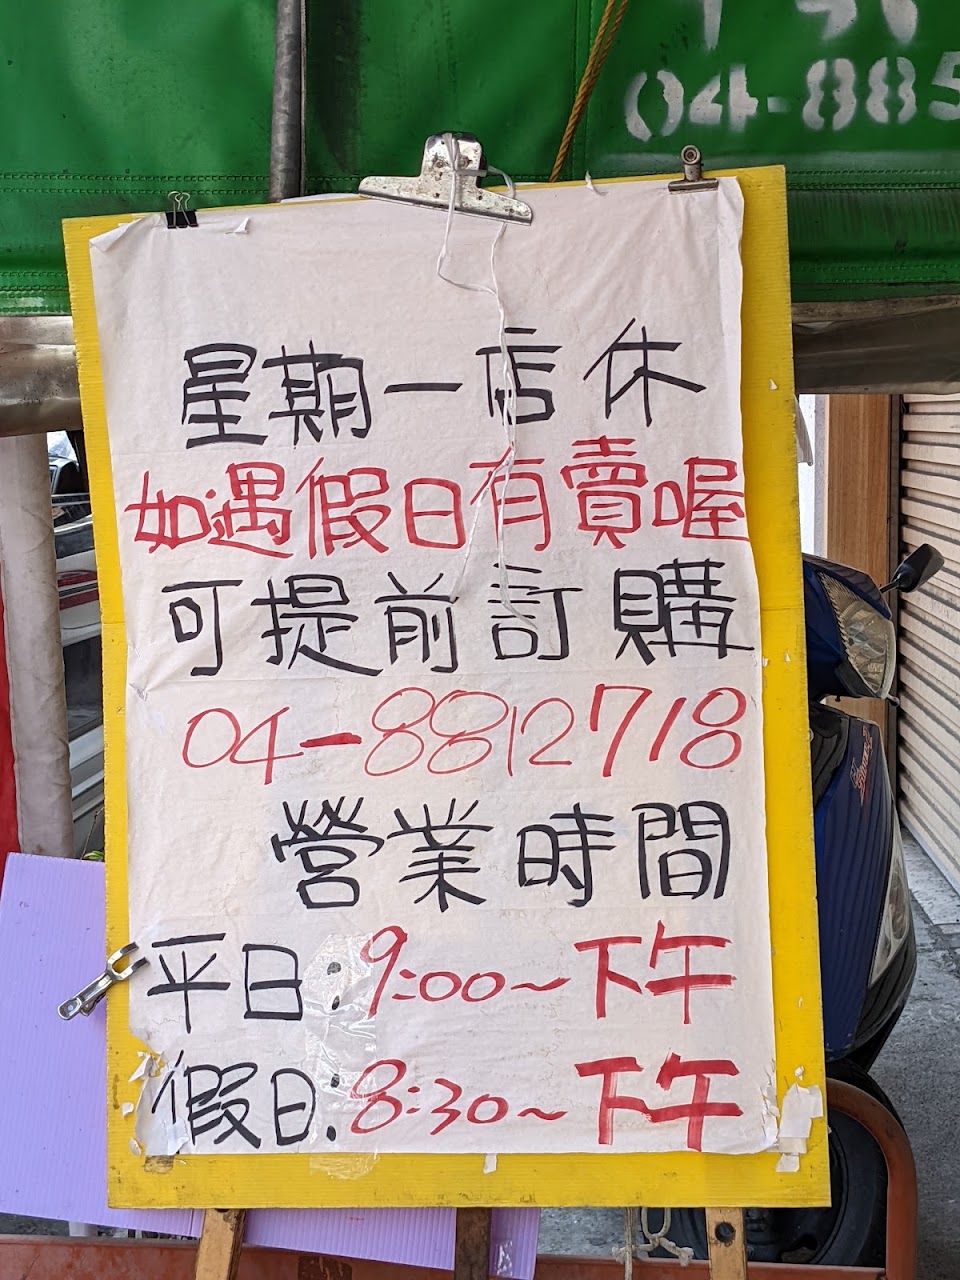 04-885
星期一店休
如遇假日有賣喔
可提前訂購
04-8812718
營業時間
平日:9:00~下午
假日:8:30~下午